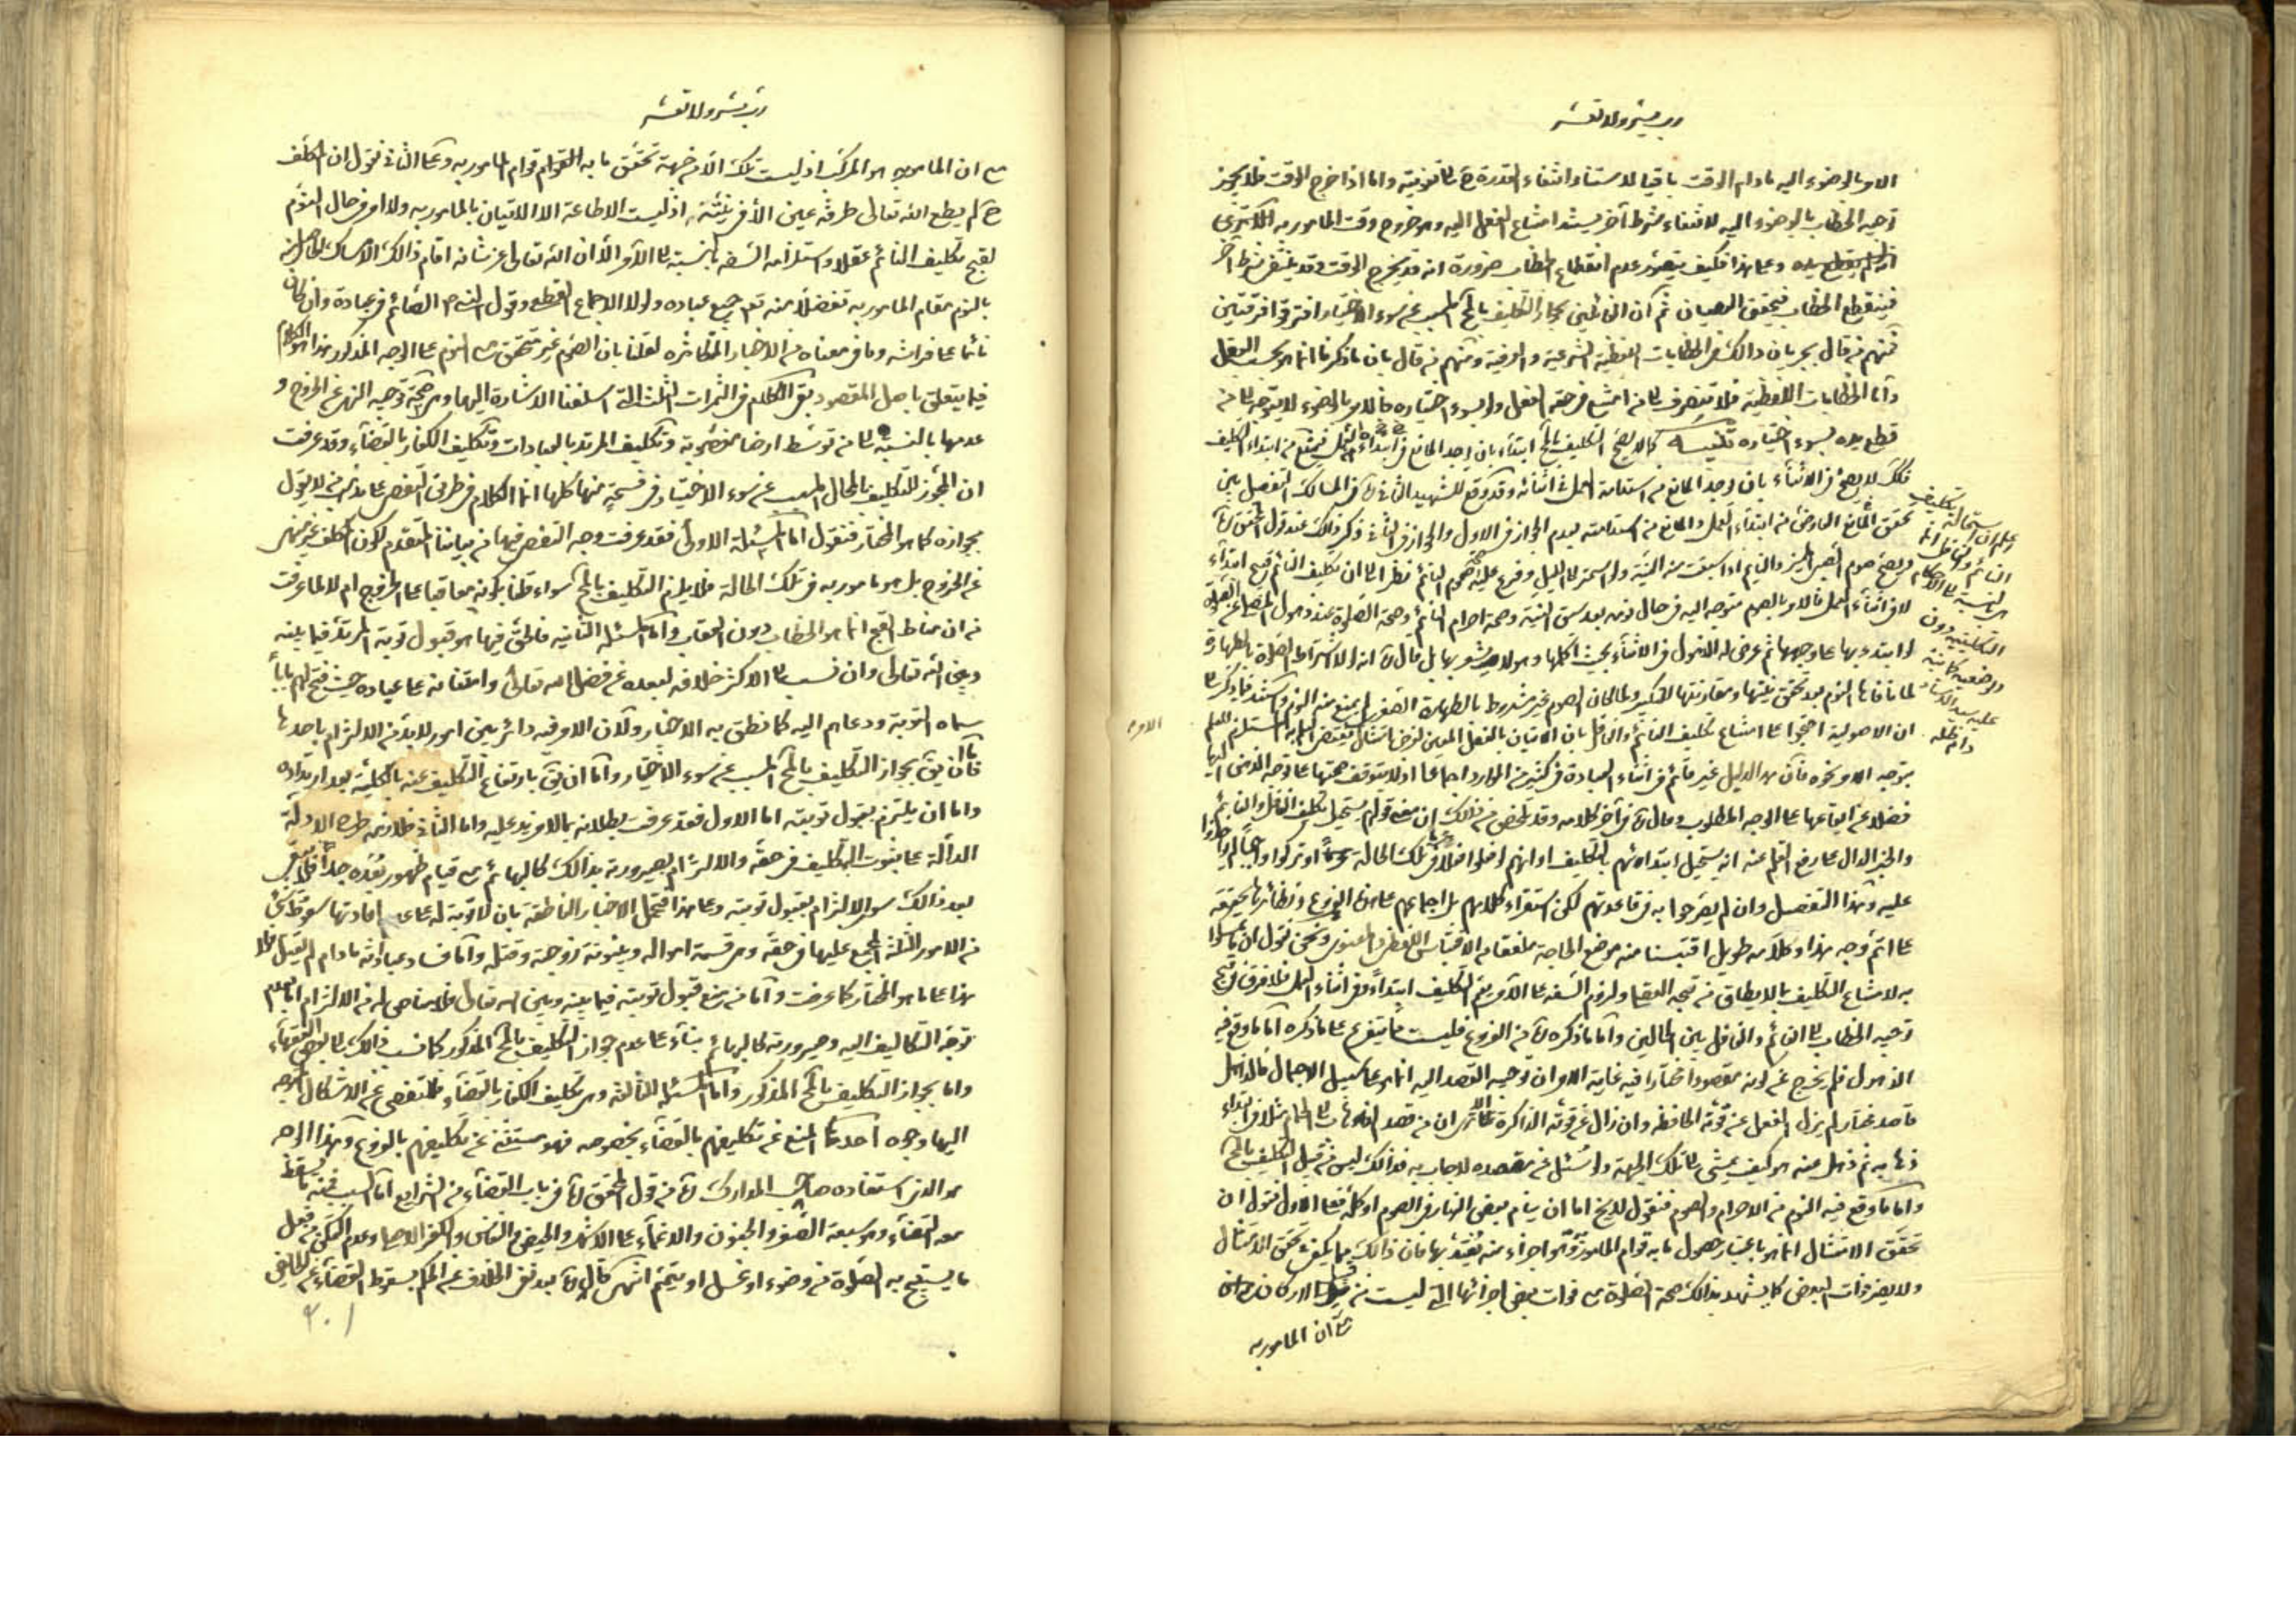 رب يسر ولا تعسر
الامر بالوضوء اليه مادام الوقت باقيا لاستناد انتفاء القدرة ح الى تفويته واما اذا خرج الوقت فلا يجوز
توجيه الخطاب بالوضوء اليه لانتفاء شرط آخر يستند امتناع الفعل اليه وهو خروج وقت المامور به
وعلى هذا فكيف يتصور عدم انقطاع الخطاب ضرورة انه قد يخرج الوقت وقد ينتفى شرط آخر
فينقطع الخطاب فيتحقق العصيان ثم ان القائلين بجواز التكليف بالمح المسبب عن سوء الاختيار افترقوا فرقتين
فمنهم من قال بجريان ذالك فى الخطابات اللفظية الشرعية والعرفية ومنهم من قال بان ما ذكرنا انما هو بحسب العقل
واما الخطابات اللفظية فلا تنصرف الى من امتنع فى حقه الفعل ولو بسوء اختياره فالامر بالوضوء لا يتوجه الى من
قطع يده بسوء اختياره تنبيه كما لا يصح التكليف بالمح ابتداء بان يوجد المانع فى ابتداء العمل فيمنع من ابتداء التكليف
كك لا يصح فى الاثناء بان يوجد المانع من استدامة العمل فى اثنائه وقد وقع للشهيد الثانى ره فى المسالك التفصيل بين
تحقق المانع العارض من ابتداء العمل والمانع من استدامته بعدم الجواز فى الاول والجواز فى الثانى ذكر ذلك عند قول المحقق ره
ويصح صوم الصبى المميز والنايم اذا سبقت منه النية ولو استمر الى الليل وفرع عليه صحة صوم النائم نظرا الى ان تكليف النائم قبيح ابتداء
لا فى اثناء العمل فالامر بالصوم متوجه اليه فى حال نومه بعد سبق النية وصحة احرام النائم وصحة الصلوة عند ذهول المصلى عن الصلوة
لو ابتدء بها على وجهها ثم عرض له الذهول فى الاثناء بحيث اكملها وهو لا يشعر بها بل قال ره انه لولا اشتراط الصلوة بالطهارة
لما نافاها النوم بعد تحقق نيتها ومقارنتها للتكبير ولما كان الصوم غير مشروط بالطهارة الصغرى لم يمنع منه النوم واستند فيما ذكر الى
ان الاصولية احتجوا على امتناع تكليف النائم والغافل بان الاتيان بالفعل المعين لغرض امتثال يقتضى العلم به المستلزم للعلم
بتوجه الامر نحوه فان هذا الدليل غير قائم فى اثناء العبادة فى كثير من الموارد اجماعا اذ لا يتوقف صحتها على توجه الذهن اليها
فضلا عن ايقاعها على الوجه المطلوب وقال ره فى آخر كلامه وقد تلخص من ذلك ان معنى قولهم يستحيل تكليف الغافل والنائم
والخبر الدال على رفع القلم عنه انه يستحيل ابتداؤهم بالتكليف او انهم لو فعلوا فعلا فى تلك الحالة او تركوا واجبا لم يؤاخذوا
عليه وبهذا التفصيل وان لم يصرحوا به فى قاعدتهم لكن استقراء كلامهم بل اجماعهم على هذه الفروع ونظائرها يحققه
على اتم وجه هذا وكلامه طويل اقتبسنا منه موضع الحاجة ونحن نقول ان ما تمسكوا
به لامتناع التكليف بما لا يطاق من قبحه العقلى ولزوم السفه على الآمر يعم التكليف ابتداء وفى اثناء العمل فلا فرق فى قبح
توجيه الخطاب الى النائم والغافل بين الحالين واما ما ذكره ره من الفروع فليست مما يتفرع على ما ذكره اما ما وقع فيه
الذهول فلم يخرج عن كونه مقصودا مختارا فيه غاية الامر ان توجيه القصد اليه انما هو على سبيل الاجمال فالذاهل
قاصد مختار لم يزل الفعل عن قوته الحافظة وان زال عن قوته الذاكرة الا ترى ان من قصد الذهاب الى الحمام مثلا فى ابتداء
ذهابه ثم ذهل عنه هو كيف يمشى الى تلك الجهة ولو سئل عن مقصده لاجاب به فذالك ليس من قبيل التكليف بالمح
واما ما وقع فيه النوم من الاحرام والصوم فنقول للايخ اما ان ينام بعض النهار فى الصوم او كله فعلى الاول نقول ان
تحقق الامتثال انما هو باعتبار حصول ما به قوام المامور به وهو اجزاء منه يعتد بها فان ذالك مما يكفى فى تحقق الامتثال
ولا يضر فوات البعض كما يشهد بذالك صحة الصلوة مع فوات بعض اجزائها التى ليست من قبيل الاركان
على ان المامور به
اعلم ان استحالة تكليف
النائم والغافل انما
هى بالنسبة الى الاحكام
التكليفية دون
الوضعية كما نبه
عليه سيد الاستاد
دام ظله
رب يسر ولا تعسر
مع ان المامور به هو المركب اذ ليست تلك الا من جهة تحقق ما به القوام قوام المامور به وعلى الثانى نقول ان المكلف
ح لم يطع الله تعالى طرفة عين الا فى نيته اذ ليست الاطاعة الا الاتيان بالمامور به ولا امر فى حال النوم
لقبح تكليف النائم عقلا واستلزامه السفه بالنسبة الى الآمر الا ان الله تعالى عز شانه اقام ذالك الامساك الحاصل منه
بالنوم مقام المامور به تفضلا منه تع جميع عباده ولولا الاجماع القطعى وقول النبى ص الصائم فى عبادة وان كان
نائما على فراشه وما فى معناه من الاخبار المتكاثره لقلنا بان الصوم غير متحقق مع النوم على الوجه المذكور هذا هو الكلام
فيما يتعلق باصل المقصود بقى الكلام فى الثمرات الثلث التى اسلفنا الاشارة اليها وهى صحة توجيه النهى عن الخروج و
عدمها بالنسبة الى من توسط ارضا مغصوبة وتكليف المرتد بالعبادات وتكليف الكفار بالقضاء وقد عرفت
ان المجوز للتكليف بالمحال المسبب عن سوء الاختيار فى فسحة منها كلها انما الكلام فى طريق التفصى على مذهب من لا يقول
بجوازه كما هو المختار فنقول اما المسئلة الاولى فقد عرفت وجه التفصى فيها من بياننا المتقدم لكون المكلف غير منهى
عن الخروج بل هو مامور به فى تلك الحالة فلا يلزم التكليف بالمح سواء قلنا بكونه معاقبا على الخروج ام لا لما عرفت
من ان مناط القبح انما هو الخطاب دون العقاب واما المسئلة الثانية فالحق فيها هو قبول توبة المرتد فيما بينه
وبين الله تعالى وان نسب الى الاكثر خلافه لبعده عن فضل الله تعالى وامتنانه على عباده حيث فتح لهم بابا
سماه التوبة ودعاهم اليه كما نطق به الاخبار ولان الامر فيه دائر بين امور لا بد من الالتزام باحدها
فاما ان يق بجواز التكليف بالمح المسبب عن سوء الاختيار واما ان يق بارتفاع التكليف عنه بالكلية بعد ارتداده
واما ان يلتزم بقبول توبته اما الاول فقد عرفت بطلانه بما لا مزيد عليه واما الثانى فلازمه طرح الادلة
الدالة على ثبوت التكليف فى حقه والالتزام بصيرورته بذالك كالبهائم مع قيام ظهور بعده جدا فلا يبقى
بعد ذالك سوى الالتزام بقبول توبته وعلى هذا فتحمل الاخبار الناطقة بان لا توبة له على افادتها سقوط شئ
من الامور الثلثة المجمع عليها فى حقه وهى قسمة امواله وبينونة زوجته وقتله واما فساد عباداته مادام لم يقبل فلا
هذا على ما هو المختار كما عرفت واما من منع قبول توبته فيما بينه وبين الله تعالى فلا مناص له من الالتزام اما بعدم
توجه التكاليف اليه وصيرورته كالبهائم بناء على عدم جواز التكليف بالمح المذكور كما نسب ذالك الى بعض الفقهاء
واما بجواز التكليف بالمح المذكور واما المسئلة الثالثة وهى تكليف الكفار بالقضاء فللتفصى عن الاشكال المتوجه
اليها وجوه احدها المنع عن تكليفهم بالقضاء بخصوصه فهو مستثنى عن تكليفهم بالفروع وبهذا الوجه
هو الذى استفاده صاحب المدارك ره من قول المحقق ره فى باب القضاء من الشرايع اما السبب فمنه ما يسقط
معه القضاء وهو سبعة الصغر والجنون والاغماء على الاشهر والحيض والنفاس والكفر الاصلى وعدم التمكن من فعل
ما يستبيح به الصلوة من وضوء او غسل او تيمم انتهى قال ره بعد نفى الخلاف عن الحكم بسقوط القضاء عن الحائض